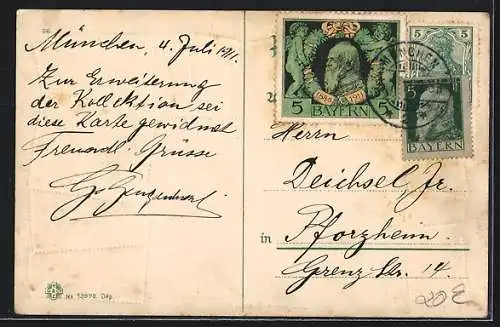 München, 4. Juli 1911.
Zur Erweiterung
der Kollektion sei
diese Karte gewidmet
Freundl. Grüsse
5 5
BAYERN
1886 1911
5 5
MÜNCHEN
5 5
BAYERN
Herrn
Deichsel Jr.
in Pforzheim.
Grenz Str. 14.
No 12898 Dép.
20E